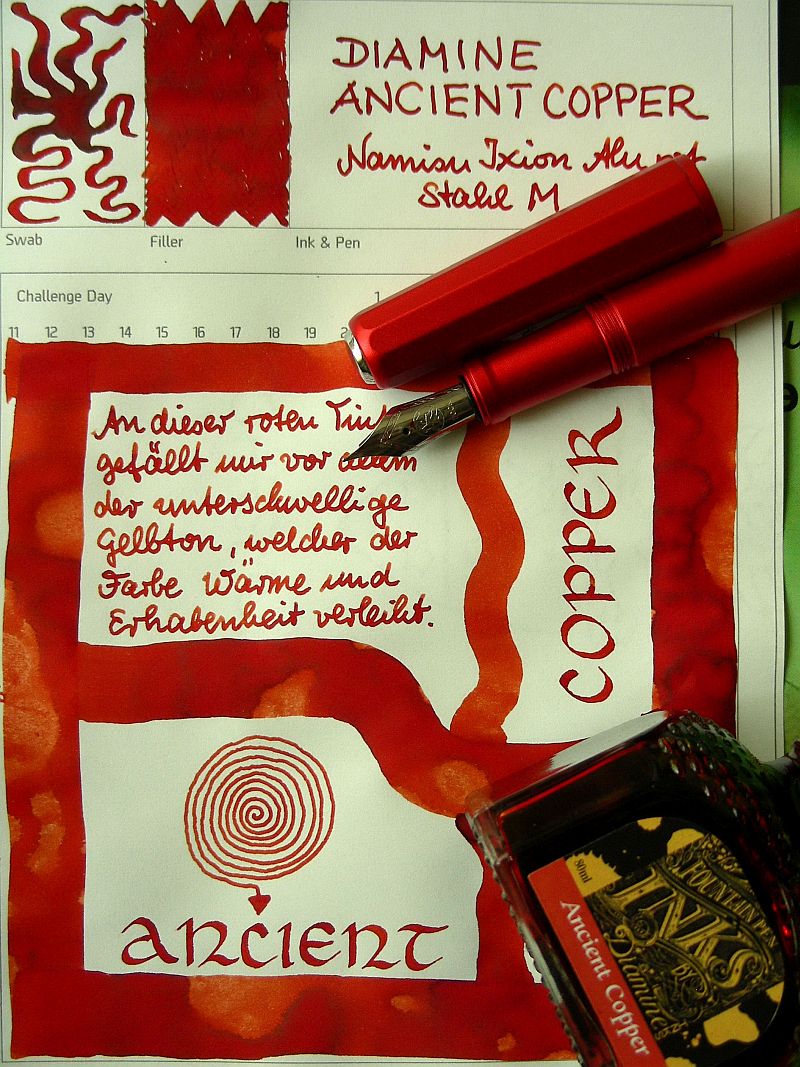 DIAMINE
ANCIENT COPPER
Namisu Ixion Alu
Stahl M
Swab Filler Ink & Pen
Challenge Day 1
11 12 13 14 15 16 17 18 19
An dieser roten
gefällt mir vor allem
der unterschwellige
Gelbton, welcher der
Farbe Wärme und
Erhabenheit verleiht.
COPPER
ANCIENT
80ml
FOUNTAIN PEN
INKS
BY
Diamine
Ancient Copper